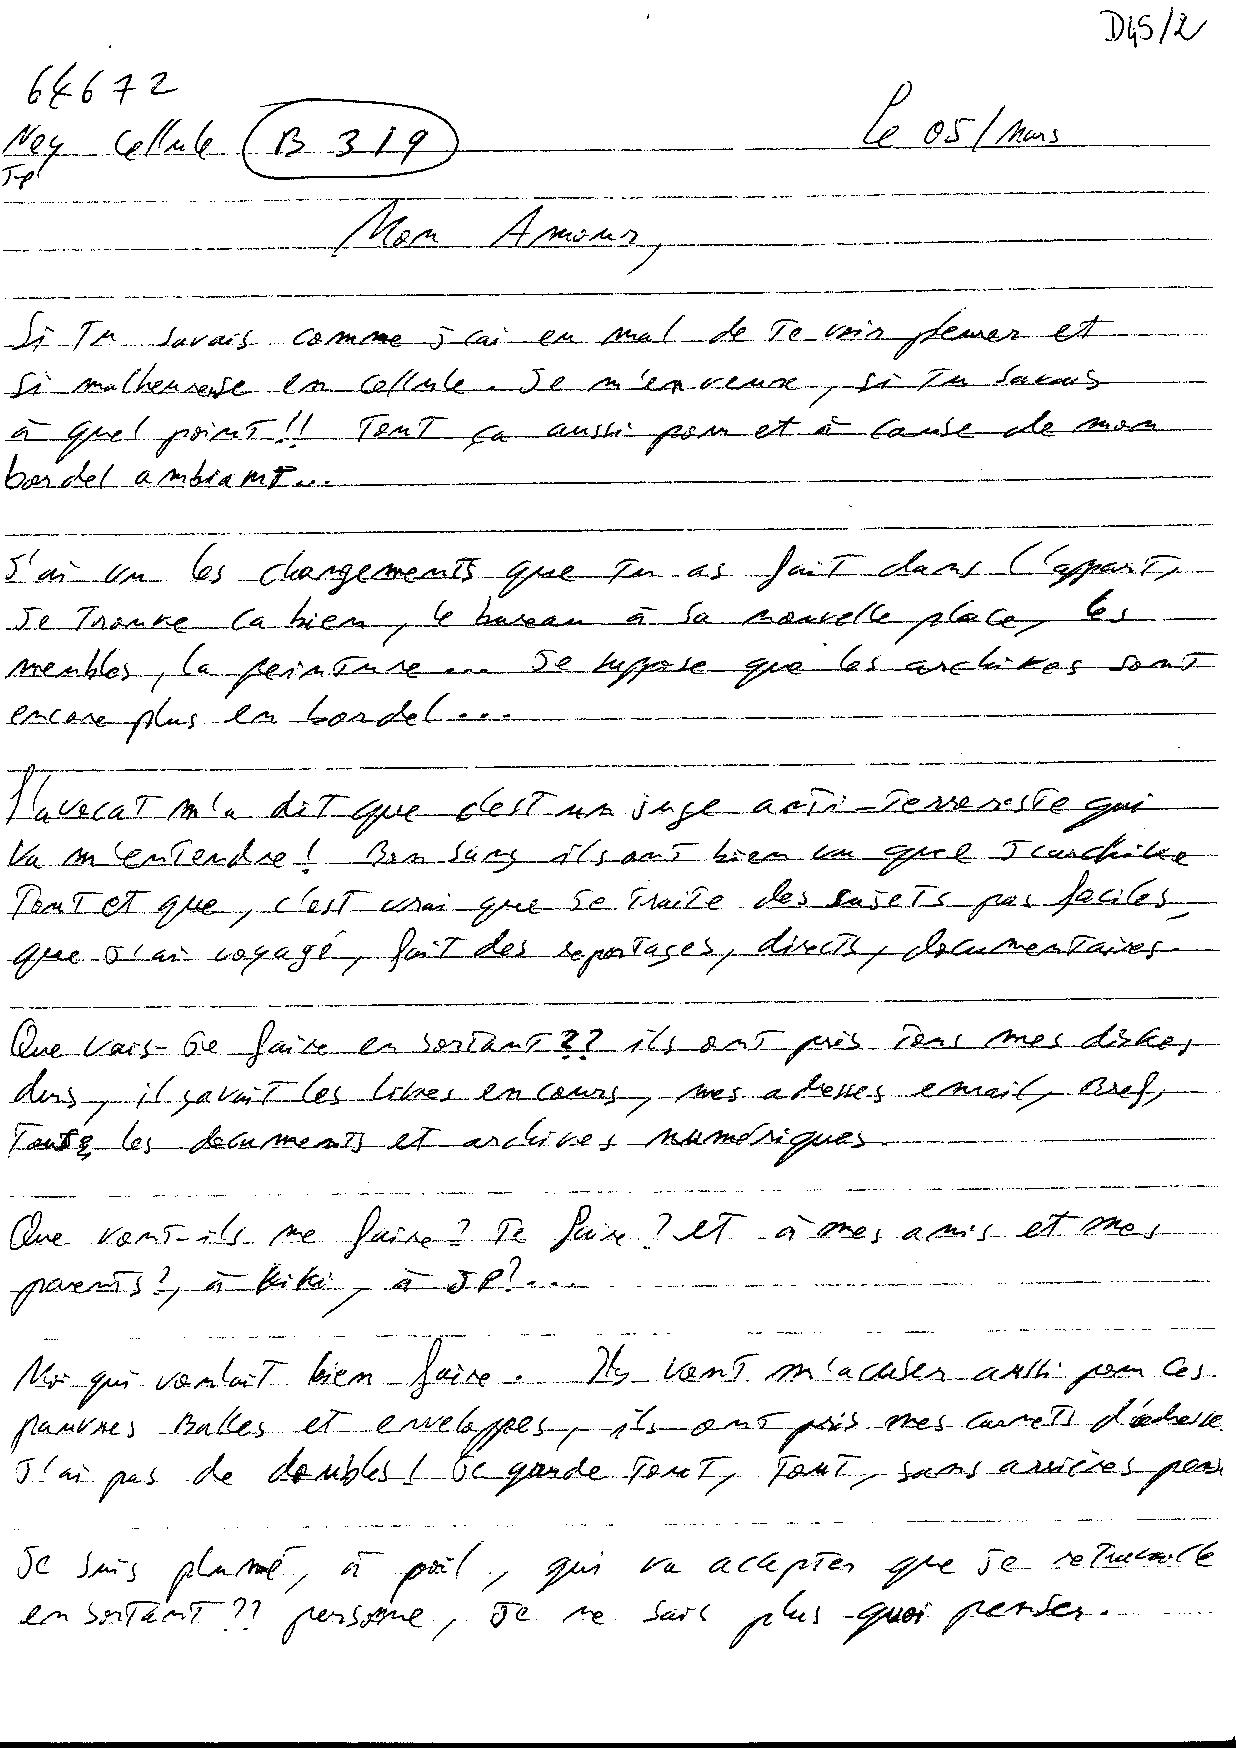 D45/2
64672
Ney Cellule B 319 Le 05/Mars
J-P
Mon Amour,
Si Tu savais comme j'ai eu mal de Te voir pleurer et
si malheureuse en cellule. Je m'en veux, si Tu savais
à quel point!! Tout ça aussi pour et à cause de mon
bordel ambiant...
J'ai vu les changements que Tu as fait dans l'appart,
Je Trouve ça bien, le bureau à sa nouvelle place, les
meubles, la peinture... Je suppose que les archives sont
encore plus en bordel...
l'avocat m'a dit que c'est un juge anti-terroriste qui
va m'entendre! Bon sang ils ont bien vu que J'archive
Tout et que, c'est vrai que Je Traite des sujets pas faciles,
que J'ai voyagé, fait des reportages, directs, documentaires.
Que vais-Je faire en sortant?? ils ont pris Tous mes diskes
durs, il y avait les livres en cours, mes adesses email, Bref,
Touts les documents et archives numériques.
Que vont-ils me faire? Te faire? et à mes amis et mes
parents?, à Kiki, à JP?...
Moi qui voulait bien faire. Ils vont m'acuser aussi pour ces
pauvres Balles et enveloppes, ils ont pris mes carnets d'adresse
J'ai pas de doubles! Je garde Tout, Tout, sans arrières pen
Je suis plumé, à poil, qui va accepter que je retravaille
en sortant?? persone, Je ne sais plus quoi penser.